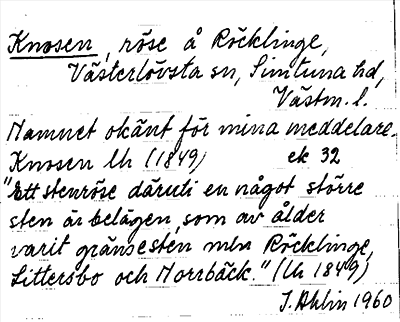 Knosen, röse å Röcklinge,
Västerlövsta sn, Simtuna hd,
Västm. l.
Namnet okänt för mina meddelare.
Knosen Lh (1849) ek 32
"Ett stenröse däruti en något större
sten är belägen, som av ålder
varit gränssten mln Röcklinge,
Littersbo och Norrbäck." (Lh 1849)
J. Ahlin 1960